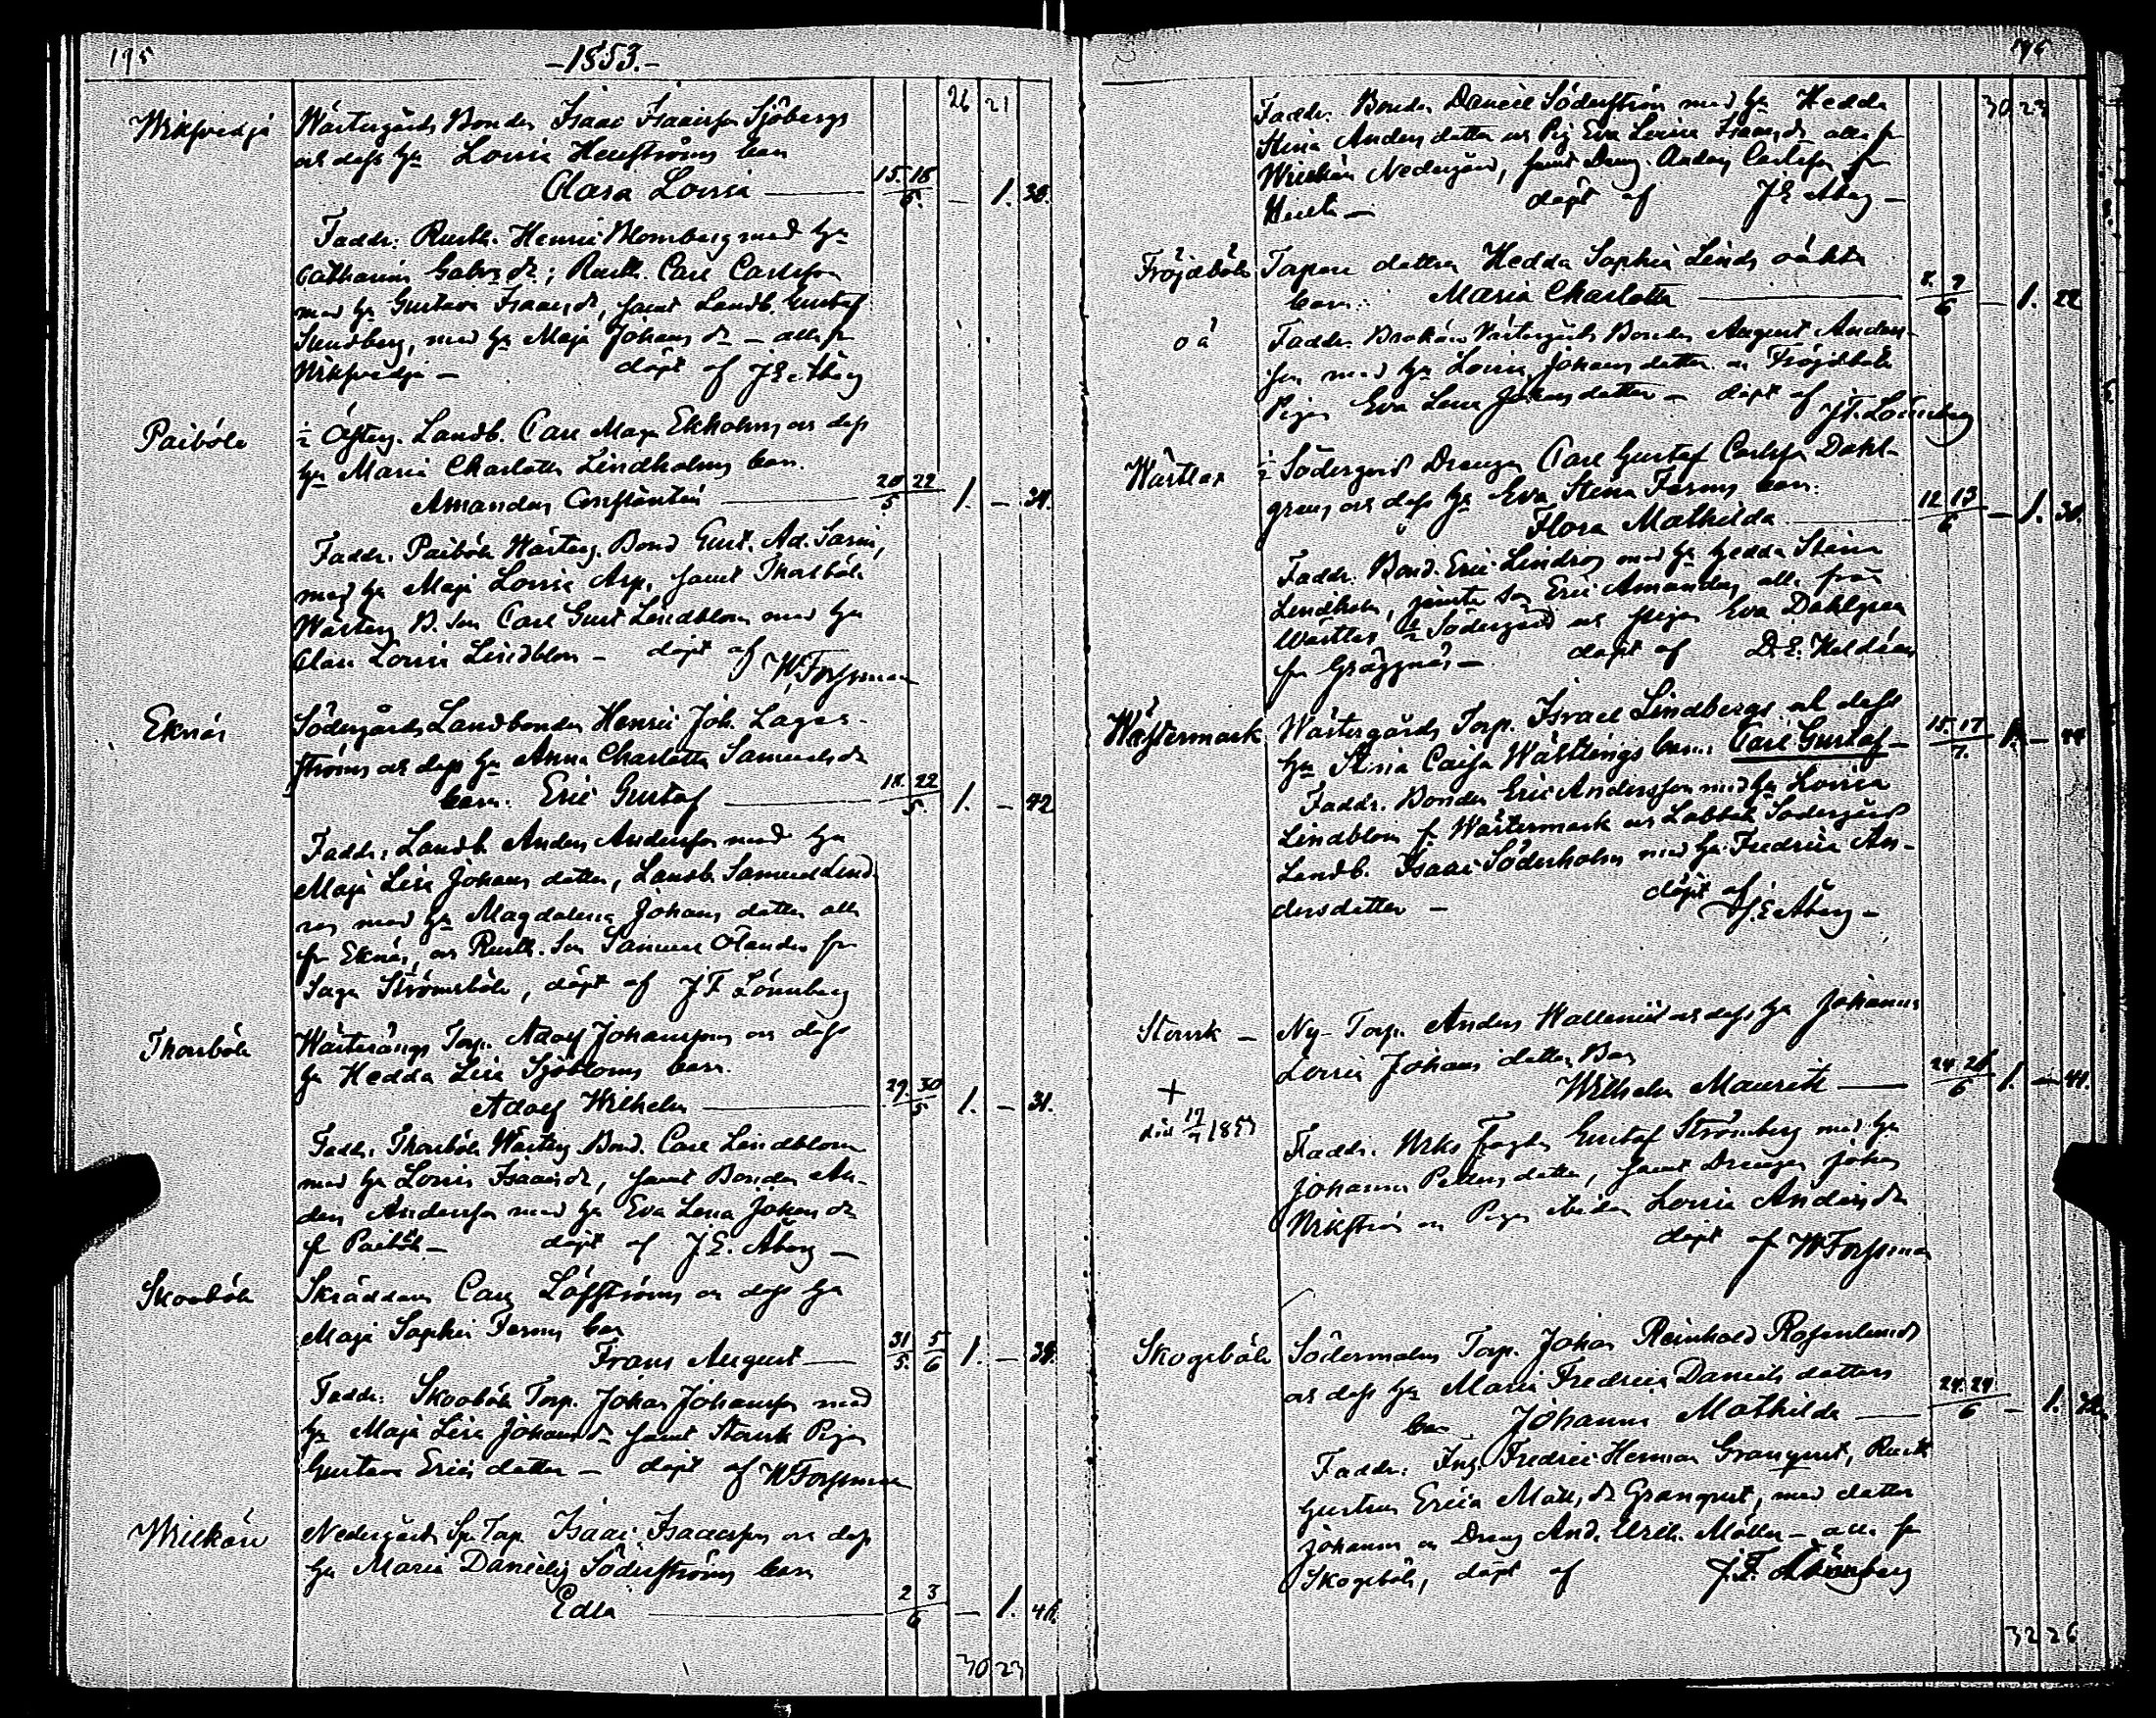 195
-1853.-
26 21
Wreksvedja Wästergårds Bonden Isaac Isaacsson Sjöbergs
och dess hu Lovisa Henströms barn
Clara Lovisa 15. 18/6. — 1. 30.
Faddr: Rusth. Henric Blomberg med hu
Catharina Gabr.dr; Rusth. Carl Carlsson
med hu Gustava Isaacsdr, samt Landb. Gustaf
Sundberg, med hu Maja Johansdr — alla fr
döpt af J E Åberg
Paiböle ½ Österg. Landb. Carl Magn Ekholms och dess
hu Maria Charlotta Lindholms barn.
Amanda Constantia 20 22/5 1. — 34.
Faddr. Paiböle Wästerg. Bond Gust. Ad.
med hu Maja Lovisa Arp, samt Thorsböle
Wästerg B. Son Carl Gust Lindblom med hu
Clara Lovisa Lindblom — döpt af W. Forssman
Eknäs Södergårds Landbonden Henric Joh. Lager-
ströms och dess hu Anna Charlotta Samuelsdr
barn. Eric Gustaf 18. 22/5. 1. — 42
Faddr: Landb. Anders Andersson med hu
Maja Lisa Johans datter, Landb. Samuel Lind-
ros med hu Magdalena Johans datter alla
fr Eknäs, och Rusth. Son Samuel Ölander fr
Saga Strömsböle, döpt af J F Lönnberg
Thorsböle Wästerängs Torp. Adolf Johanssons och dess
hu Hedda Lisa Sjöbloms barn.
Adolf Wilhelm 29. 30/5 1. — 31.
Faddr. Thorsböle Wästerg Bond. Carl Lindblom
med hu Lovisa Isaacsdr, samt Bonden An-
ders Andersson med hu Eva Lena Johansdr
fr Paiböle — döpt af J. E. Åberg —
Skoböle Skräddaren Carl Löfströms och dess hu
Maja Sophia Ferms barn
Frans August 31/5. 5/6 1. — 38.
Faddr: Skoböle Torp. Johan Johansson med
hu Maja Lisa Johansdr samt Storvik Pigan
Gustava Erics datter — döpt af W Forssman
Nedergårds Sp. Torp. Isaac Isaacsson och dess
hu Maria Danielsdr Söderströms barn
Edla 2 3/6 — 1. 46.
30 23
196
30 23
Faddr. Bonden Daniel Söderström med hu Hedda
Stina Anders datter och Pig Eva Lovisa Isaacsdr alla fr
Nedergård, samt Dreng. Anders Carlsson fr
döpt af J E Åberg —
Fröjdböle Torpare dottren Hedda Sophia Linds oäkta
barn: Maria Charlotta 8. 9/6 — 1. 22
oä Faddr. Wästergårds Bonden August Anders-
son med hu Lovisa Johans datter och Fröjdböle
Pigan Eva Lena Johans datter — döpt af J F. Lönnberg
Wästlax ½ Södergård Drengen Carl Gustaf Carlsson Dahl-
grens och dess hu Eva Stina Ferms barn:
Flora Mathilda 12 13/6 — 1. 30.
Faddr. Bond. Eric Lindros med hu Hedda Stina
Lindholm, jemte son Eric Amandus alla från
Wästlax ½ Södergård och pigan Eva Dahlgren
fr Gräggnäs — döpt af D. E. Heldéen
Wästermark Wästergårds Torp. Israel Lindbergs och dess
hu Stina Caisa Wättlings barn: Carl Gustaf — 15. 17/7. 1. — 44
Faddr. Bonden Eric Andersson med hu Lovisa
Lindblom fr Wästermark och Labböle Södergård
Landb. Isaac Söderholm med hu Fredrica An-
dersdatter — döpt af J. E. Åberg —
Storvik — Ny-Torp. Anders Wallenii och dess hu Johanna
Lovisa Johans datter Barn
+ Wilhelm Mauritz 24 26/6 1. — 44.
död 17/7 1853
Faddr. Fogden Gustaf Strömberg med hu
Johanna Petters datter, samt Drengen Johan
Wikström och Pigan Lovisa Andersdr
döpt af W Forssman
Skogsböle Södermalms Torp. Johan Reinhold Rosenlunds
och dess hu Maria Fredrica Daniels datters
barn Johanna Mathilda 24. 29/6 — 1. 32.
Faddr: Fredric Herman Granqvist, Rusth
Gustava Erica Matts.dr Granqvist, med datter
Johanna och Dreng And. Ulric. Möller — alla fr
Skogsböle, döpt af J. F. Lönnberg
32 26